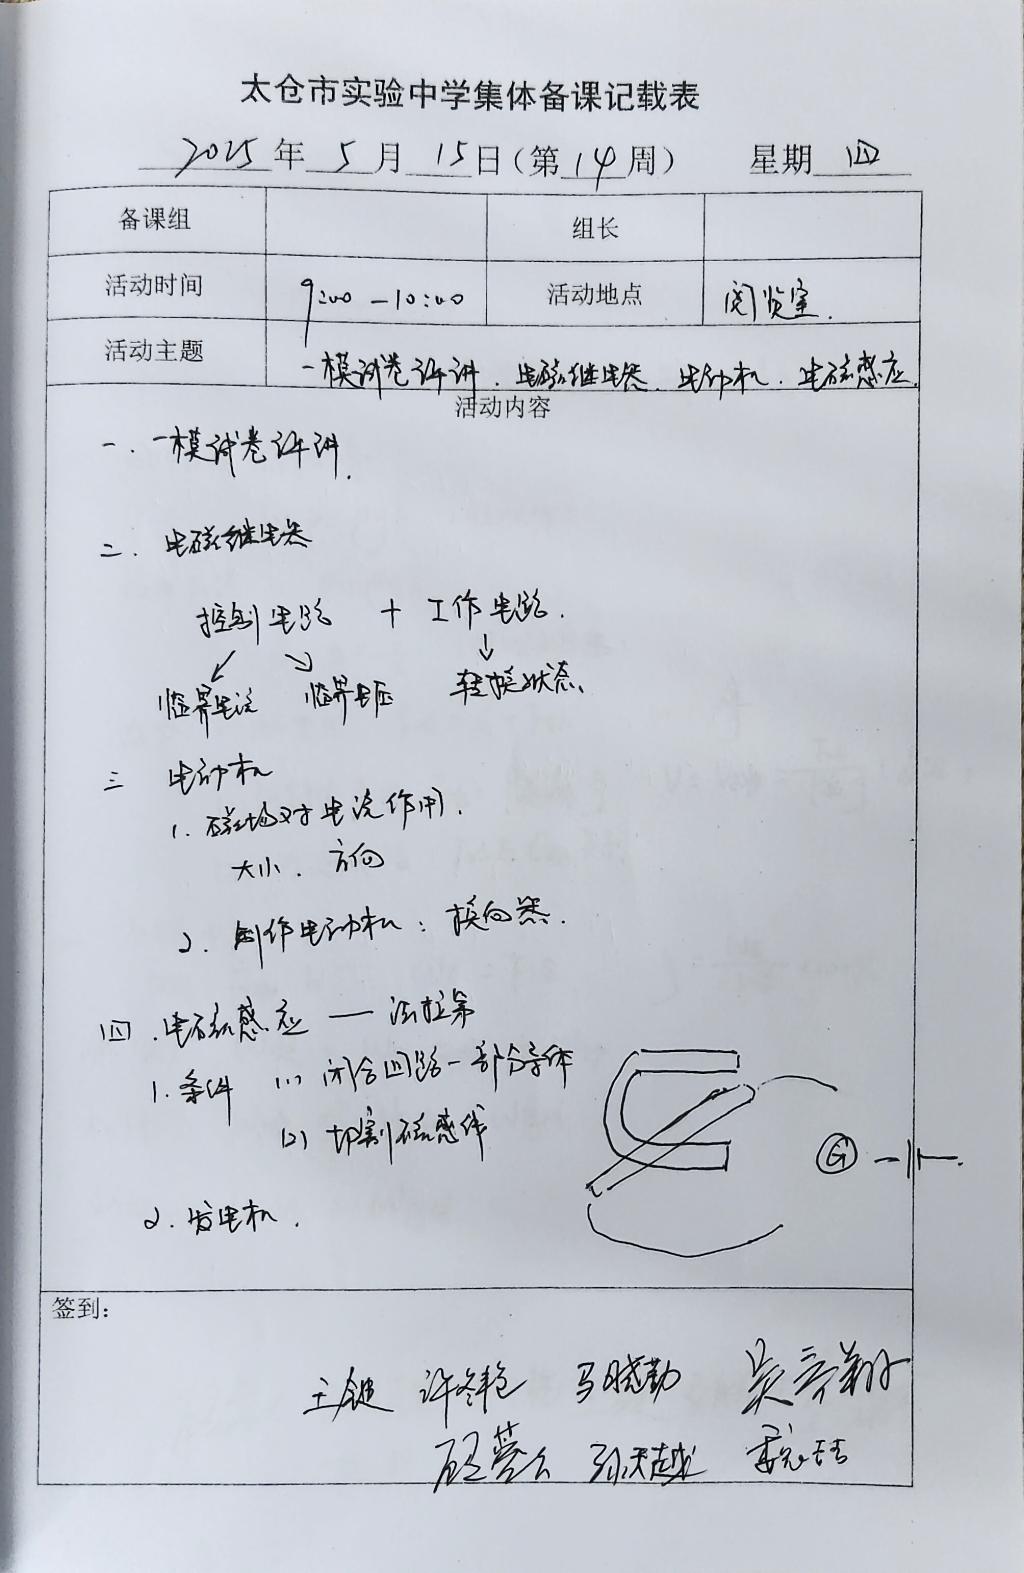 太仓市实验中学集体备课记载表
2025年5月15日（第14周） 星期四
备课组 组长
活动时间 9:00-10:00 活动地点 阅览室.
活动主题 一模试卷评讲. 电磁继电器. 电动机. 电磁感应.
活动内容
一. 一模试卷评讲.
二. 电磁继电器
控制电路 + 工作电路.
↙ ↘ ↓
临界电流 临界电压 转换状态.
三 电动机
1. 磁场对电流作用.
大小. 方向
2. 制作电动机: 换向器.
四. 电磁感应 — 法拉第
1. 条件 (1) 闭合回路一部分导体
(2) 切割磁感线
G
2. 发电机.
签到:
王健 许冬艳 马晓勤
孙天越